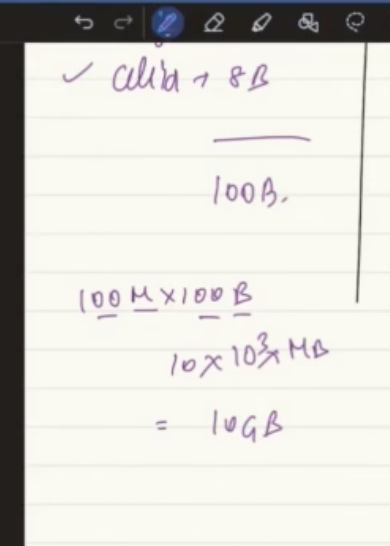 ✓ cellid → 8B
100B.
100 M × 100 B
10 × 10³ × MB
= 10GB